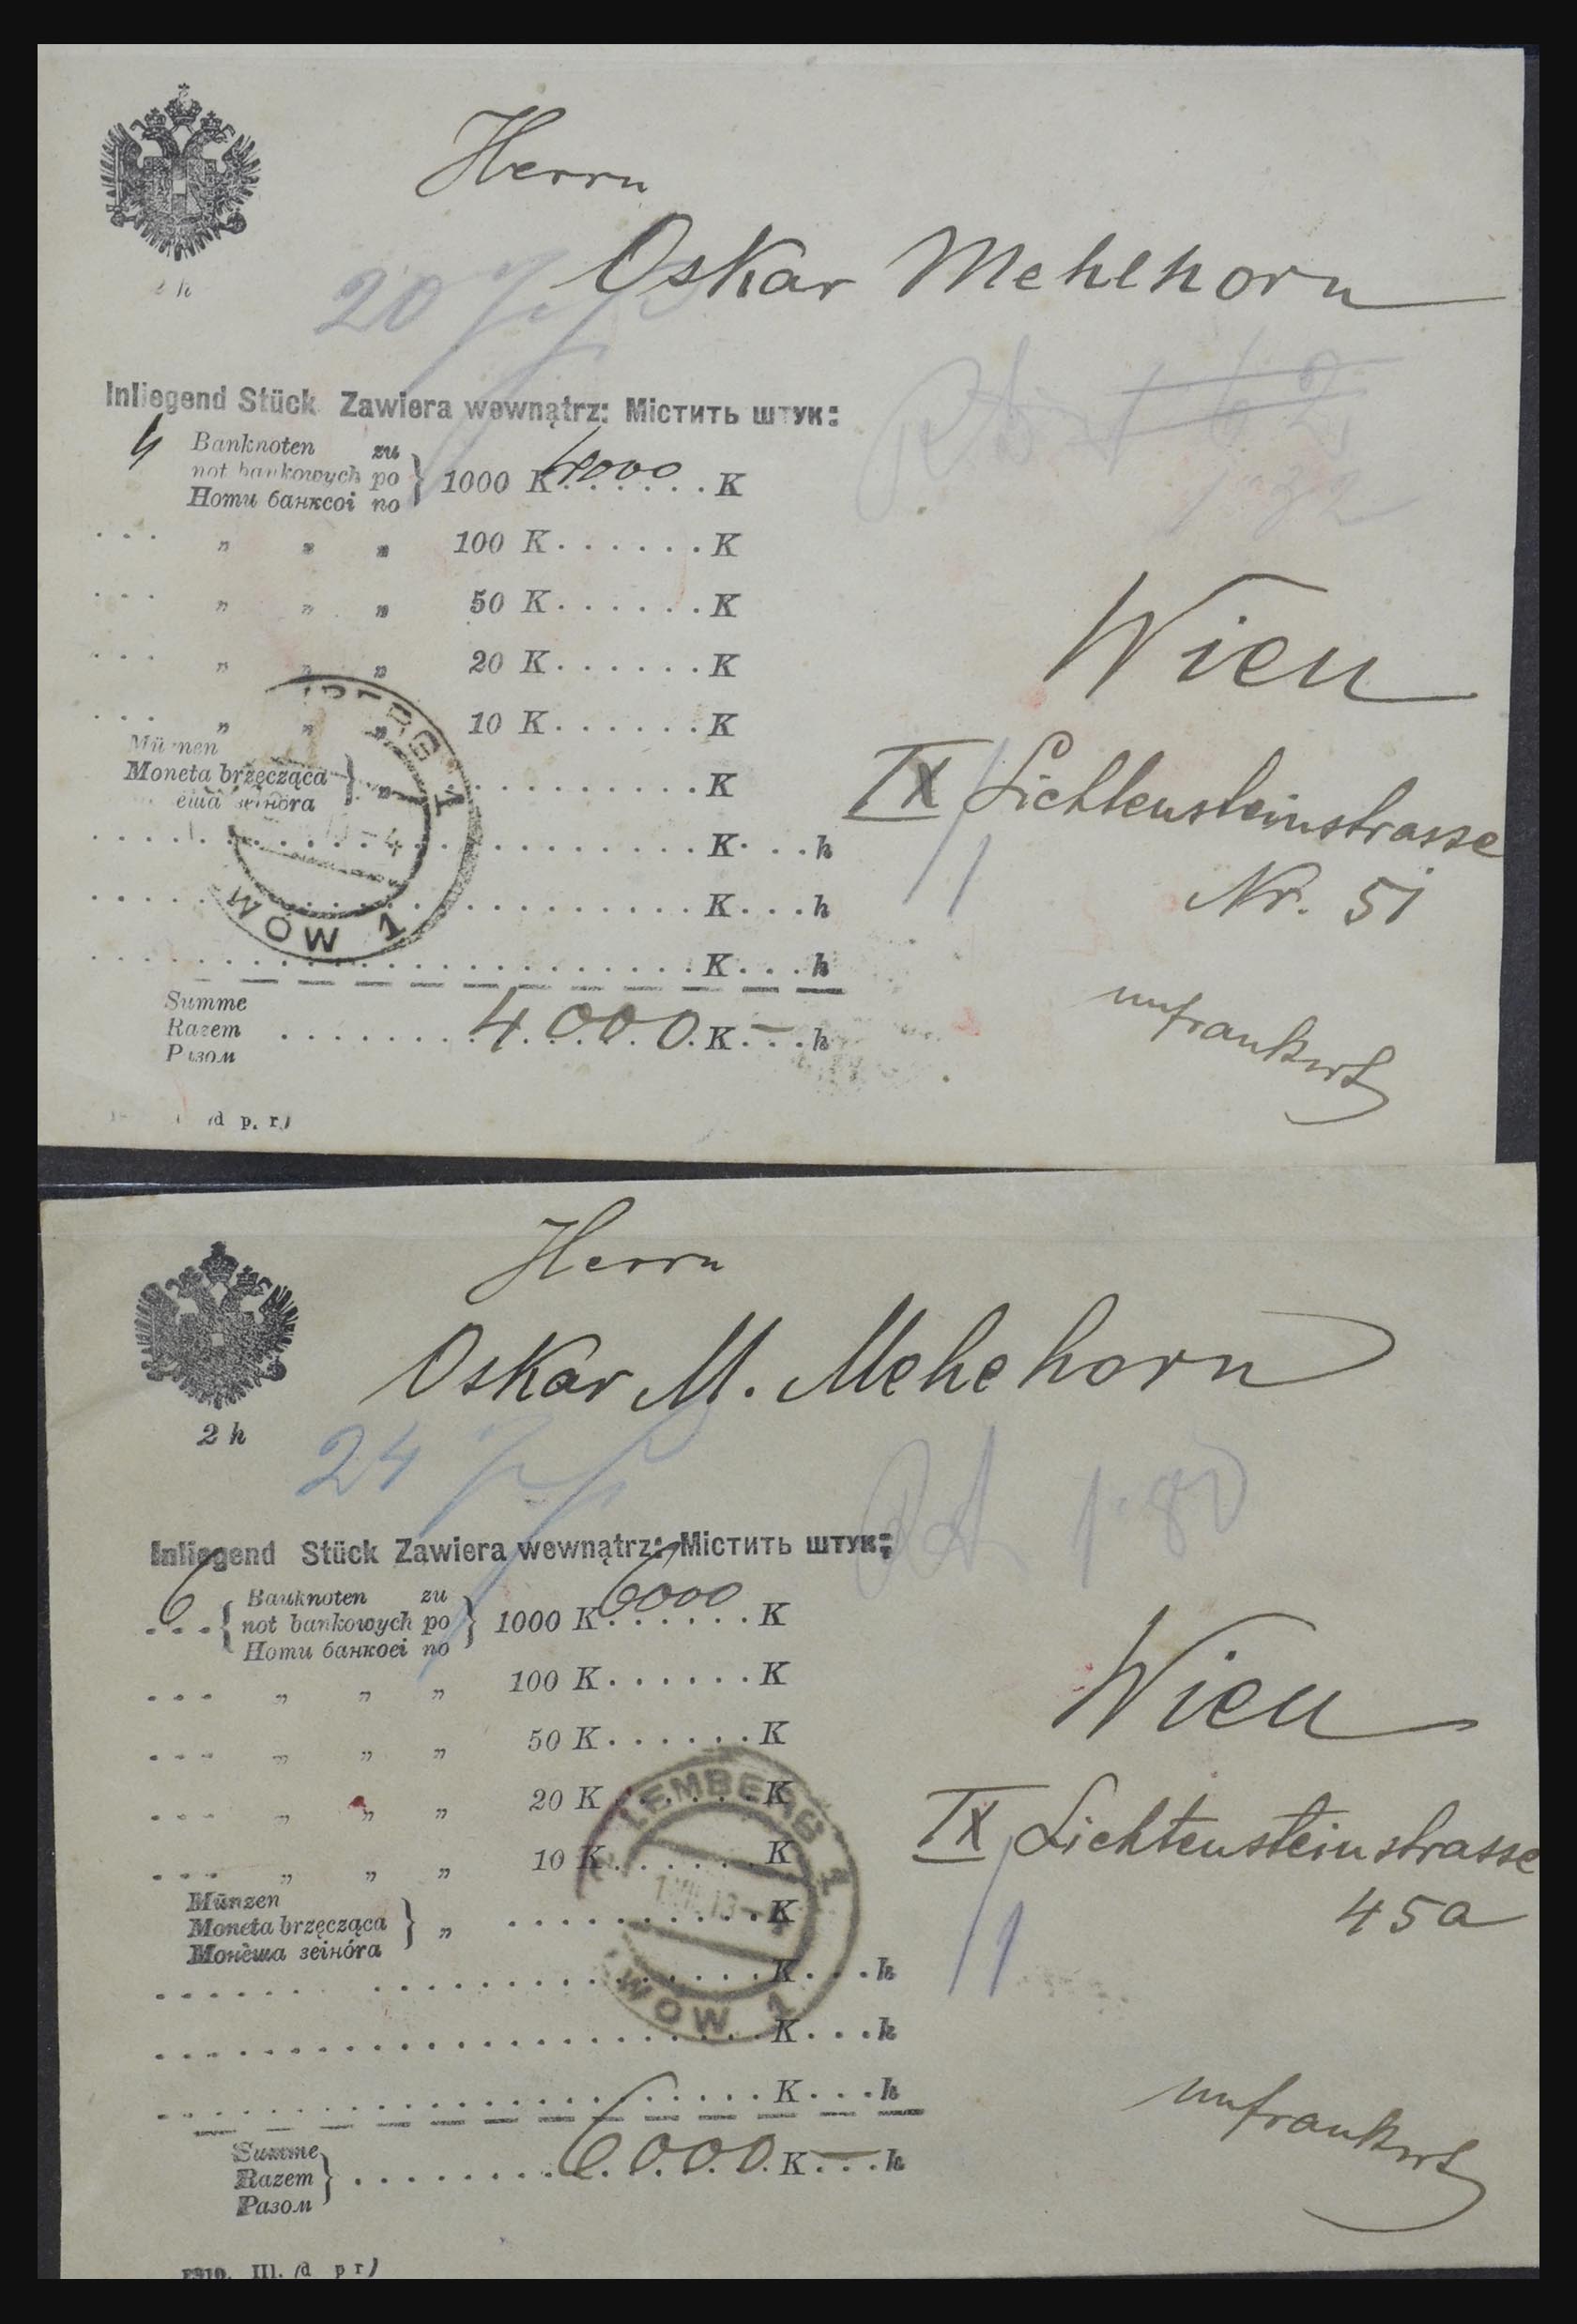 Herrn
Oskar Mehlhorn
20
Inliegend Stück Zawiera wewnątrz: Містить штук:
4 Banknoten zu
not bankowych po 1000 K 4000 K
Ноти банксоі по
" " " 100 K......K
" " " 50 K......K
" " " 20 K......K
" " " 10 K......K
Moneta brzęcząca } " ..........K
K...h
K...h
K...h
Summe
Razem ........4000.K-...h
Разом
(d p. r)
1
4
WOW 1
1·32
Wien
IX Lichtensteinstrasse
Nr. 51
unfrankirt
Herrn
Oskar M. Mehehorn
2 h
24
1·80
Inliegend Stück Zawiera wewnątrz: Містить штук:
6 { Banknoten zu
not bankowych po } 1000 K 6000 K
Ноти банкові по
" " " 100 K......K
" " " 50 K......K
" " " 20 K......K
" " " 10 K......K
Münzen
Moneta brzęcząca } " ..........K
Монета зеінóра
K...h
K...h
K...h
Summe
Razem } ........6000.K-...h
Разом
LEMBERG 1
WOW 1
Wien
IX Lichtensteinstrasse
45a
unfrankirt
1910. III. (d p r)